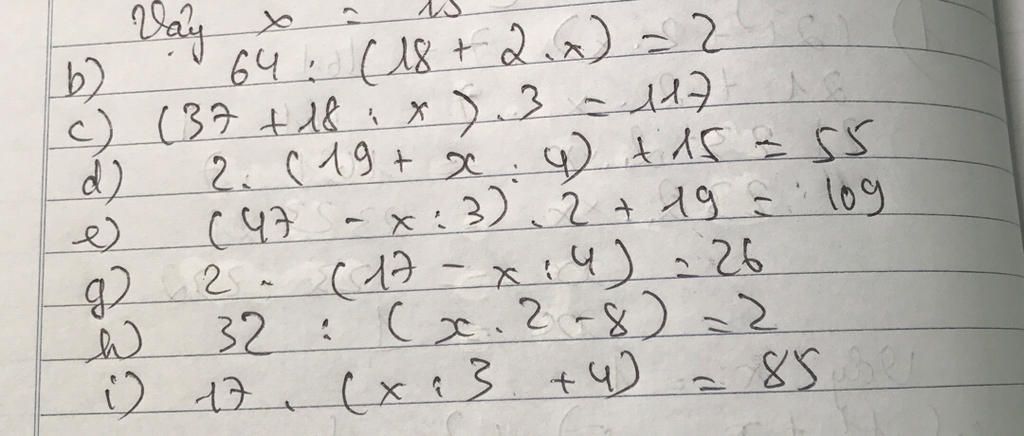 Vậy x = 15
b) 64 : (18 + 2 . x) = 2
c) (37 + 18 : x) . 3 = 117
d) 2 . (19 + x : 4) + 15 = 55
e) (47 - x : 3) . 2 + 19 = 109
g) 2 . (17 - x : 4) = 26
h) 32 : (x . 2 - 8) = 2
i) 17 . (x : 3 + 4) = 85